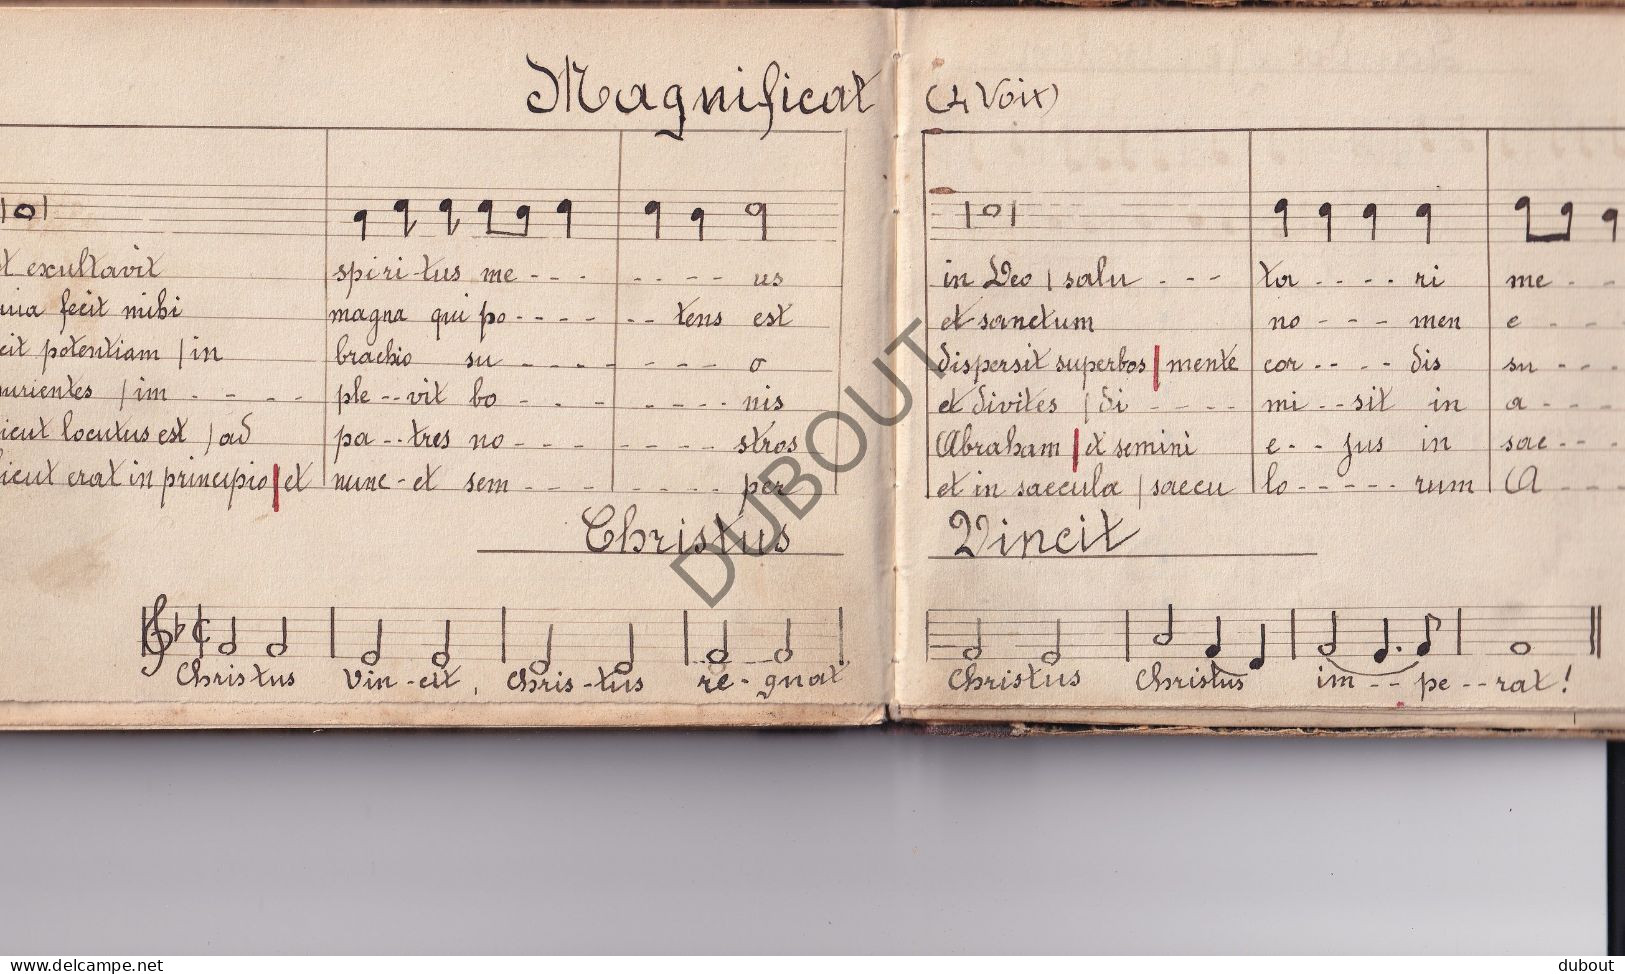 Magnificat (4 Voix)
et exultavit spiri-tus me - - - - - - - us in Deo / salu - - - ta - - - - ri me - -
quia fecit mihi magna qui po - - - - - - tens est et sanctum no - - - men e - - -
potentiam / in brachio su - - - - - - - o dispersit superbos | mente cor - - - - dis su - - -
/ im - - - - - ple - - vit bo - - - - - - - - nis et divites / di - - - - mi - - sit in a - - -
sicut locutus est / ad pa - - tres no - - - - - - - - stros Abraham | et semini e - - jus in sae - - -
sicut erat in principio | et nunc - et sem - - - - - - - per et in saecula / saecu lo - - - - - rum A - - -
Christus Vincit
Christus Vin - cit, Chris - tus re - gnat Christus Christus im - - pe - - rat!
DUBOUT
www.delcampe.net dubout